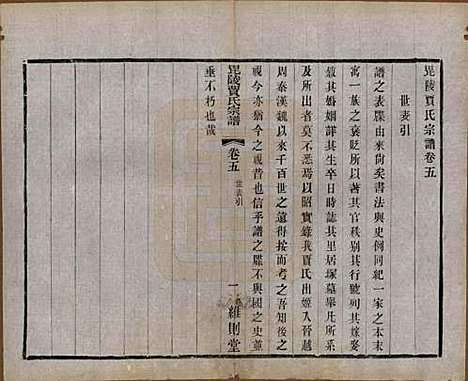 毘陵賈氏宗譜卷五
世表引
譜之表牒由來尙矣書法與史例同紀一家之本末
寓一族之褒貶所以著其官秩別其行號列其嫁娶
敘其婚姻詳其生卒日時誌其里居塚墓舉凡所系
及所出者莫不悉焉以昭實錄我賈氏出姬入晉越
周秦漢魏以來千百世之遠得按而考之吾知後之
視今亦猶今之視昔也信乎譜之牒不與國之史並
垂不朽也哉
毘陵賈氏宗譜
卷五
世表引
一
維則堂